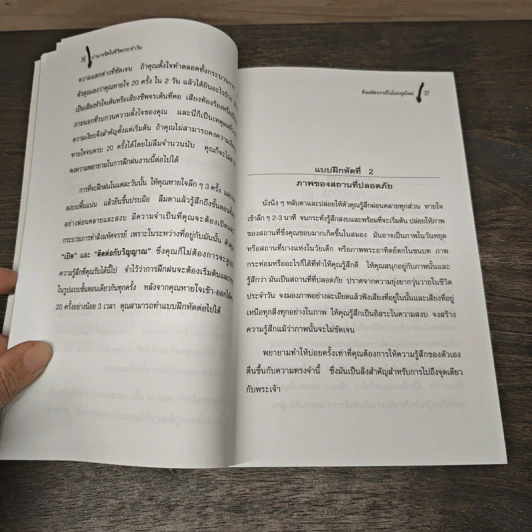 36 อำนาจจิตในชีวิตประจำวัน
ความแตกต่างที่ชัดเจน ถ้าคุณตั้งใจทำตลอดทั้งกระบวนการ
ตัวคุณเองว่าคุณหายใจ 20 ครั้ง ใน 2 วัน แล้วได้ยินอะไรบ้าง
เป็นเสียงหัวใจเต้นหรือเสียงชีพจรเต้นที่คอ เสียงท้องร้องหรือ
ภายนอกที่รบกวนความตั้งใจของคุณ และนี่ก็เป็นเหตุผล
ความเงียบจึงสำคัญตั้งแต่เริ่มต้น ถ้าคุณไม่สามารถคงความ
หายใจจนครบ 20 ครั้งได้โดยไม่ลืมจำนวนนับ คุณก็จะไม่
คงความพยายามในการฝึกฝนงานนี้ต่อไปได้
การที่จะฝึกฝนในแต่ละวันนั้น ให้คุณหายใจลึก ๆ 3 ครั้ง
ลงบนพื้นนั่น แล้วยืนขึ้นปรบมือ ลืมตาแล้วรู้สึกถึงขั้นตอน
อย่างผ่อนคลายและสงบ มีความจำเป็นที่คุณจะต้องเปิด
กระบวนการทำสิ่งมหัศจรรย์ เพราะในระหว่างที่อยู่กับมันนั้น ตัว
"เปิด" และ "ติดต่อกับวิญญาณ" ซึ่งคุณก็ไม่ต้องการจะ
ความรู้สึกที่คุณรับได้นี้ไป จำไว้ว่าการฝึกฝนจะต้องเริ่มต้นและ
ในรูปแบบขั้นตอนเดียวกันทุกครั้ง หลังจากคุณหายใจเข้า-ออกได้
20 ครั้งอย่างน้อย 3 เวลา คุณสามารถทำแบบฝึกหัดต่อไปได้
37
แบบฝึกหัดที่ 2
ภาพของสถานที่ปลอดภัย
นั่งนิ่ง ๆ หลับตาและปล่อยให้ตัวคุณรู้สึกผ่อนคลายทุกส่วน หายใจ
เข้าลึก ๆ 2-3 นาที จนกระทั่งรู้สึกสงบและพร้อมที่จะเริ่มต้น ปล่อยให้ภาพ
ของสถานที่ซึ่งคุณชอบมากเกิดขึ้นในสมอง มันอาจเป็นภาพในวันหยุด
หรือสถานที่บางแห่งในวัยเด็ก หรือภาพพระอาทิตย์ตกในชนบท ภาพ
กระท่อมหรืออะไรก็ได้ที่ทำให้คุณรู้สึกดี ให้คุณสนุกอยู่กับภาพนั้นและ
รู้สึกว่า มันเป็นสถานที่ที่ปลอดภัย ปราศจากความยุ่งยากวุ่นวายในชีวิต
ประจำวัน จงมองภาพอย่างละเอียดแล้วฟังเสียงที่อยู่ในนั้นและเสียงที่อยู่
เหนือทุกสิ่งทุกอย่างในภาพ ให้คุณรู้สึกเป็นอิสระในความสงบ จงสร้าง
ความรู้สึกแม้ว่าภาพนั้นจะไม่ชัดเจน
พยายามทำให้บ่อยครั้งเท่าที่คุณต้องการให้ความรู้สึกของตัวเอง
ตื่นขึ้นกับความทรงจำนี้ ซึ่งมันเป็นสิ่งสำคัญสำหรับการไปถึงจุดเดียว
กับพระเจ้า